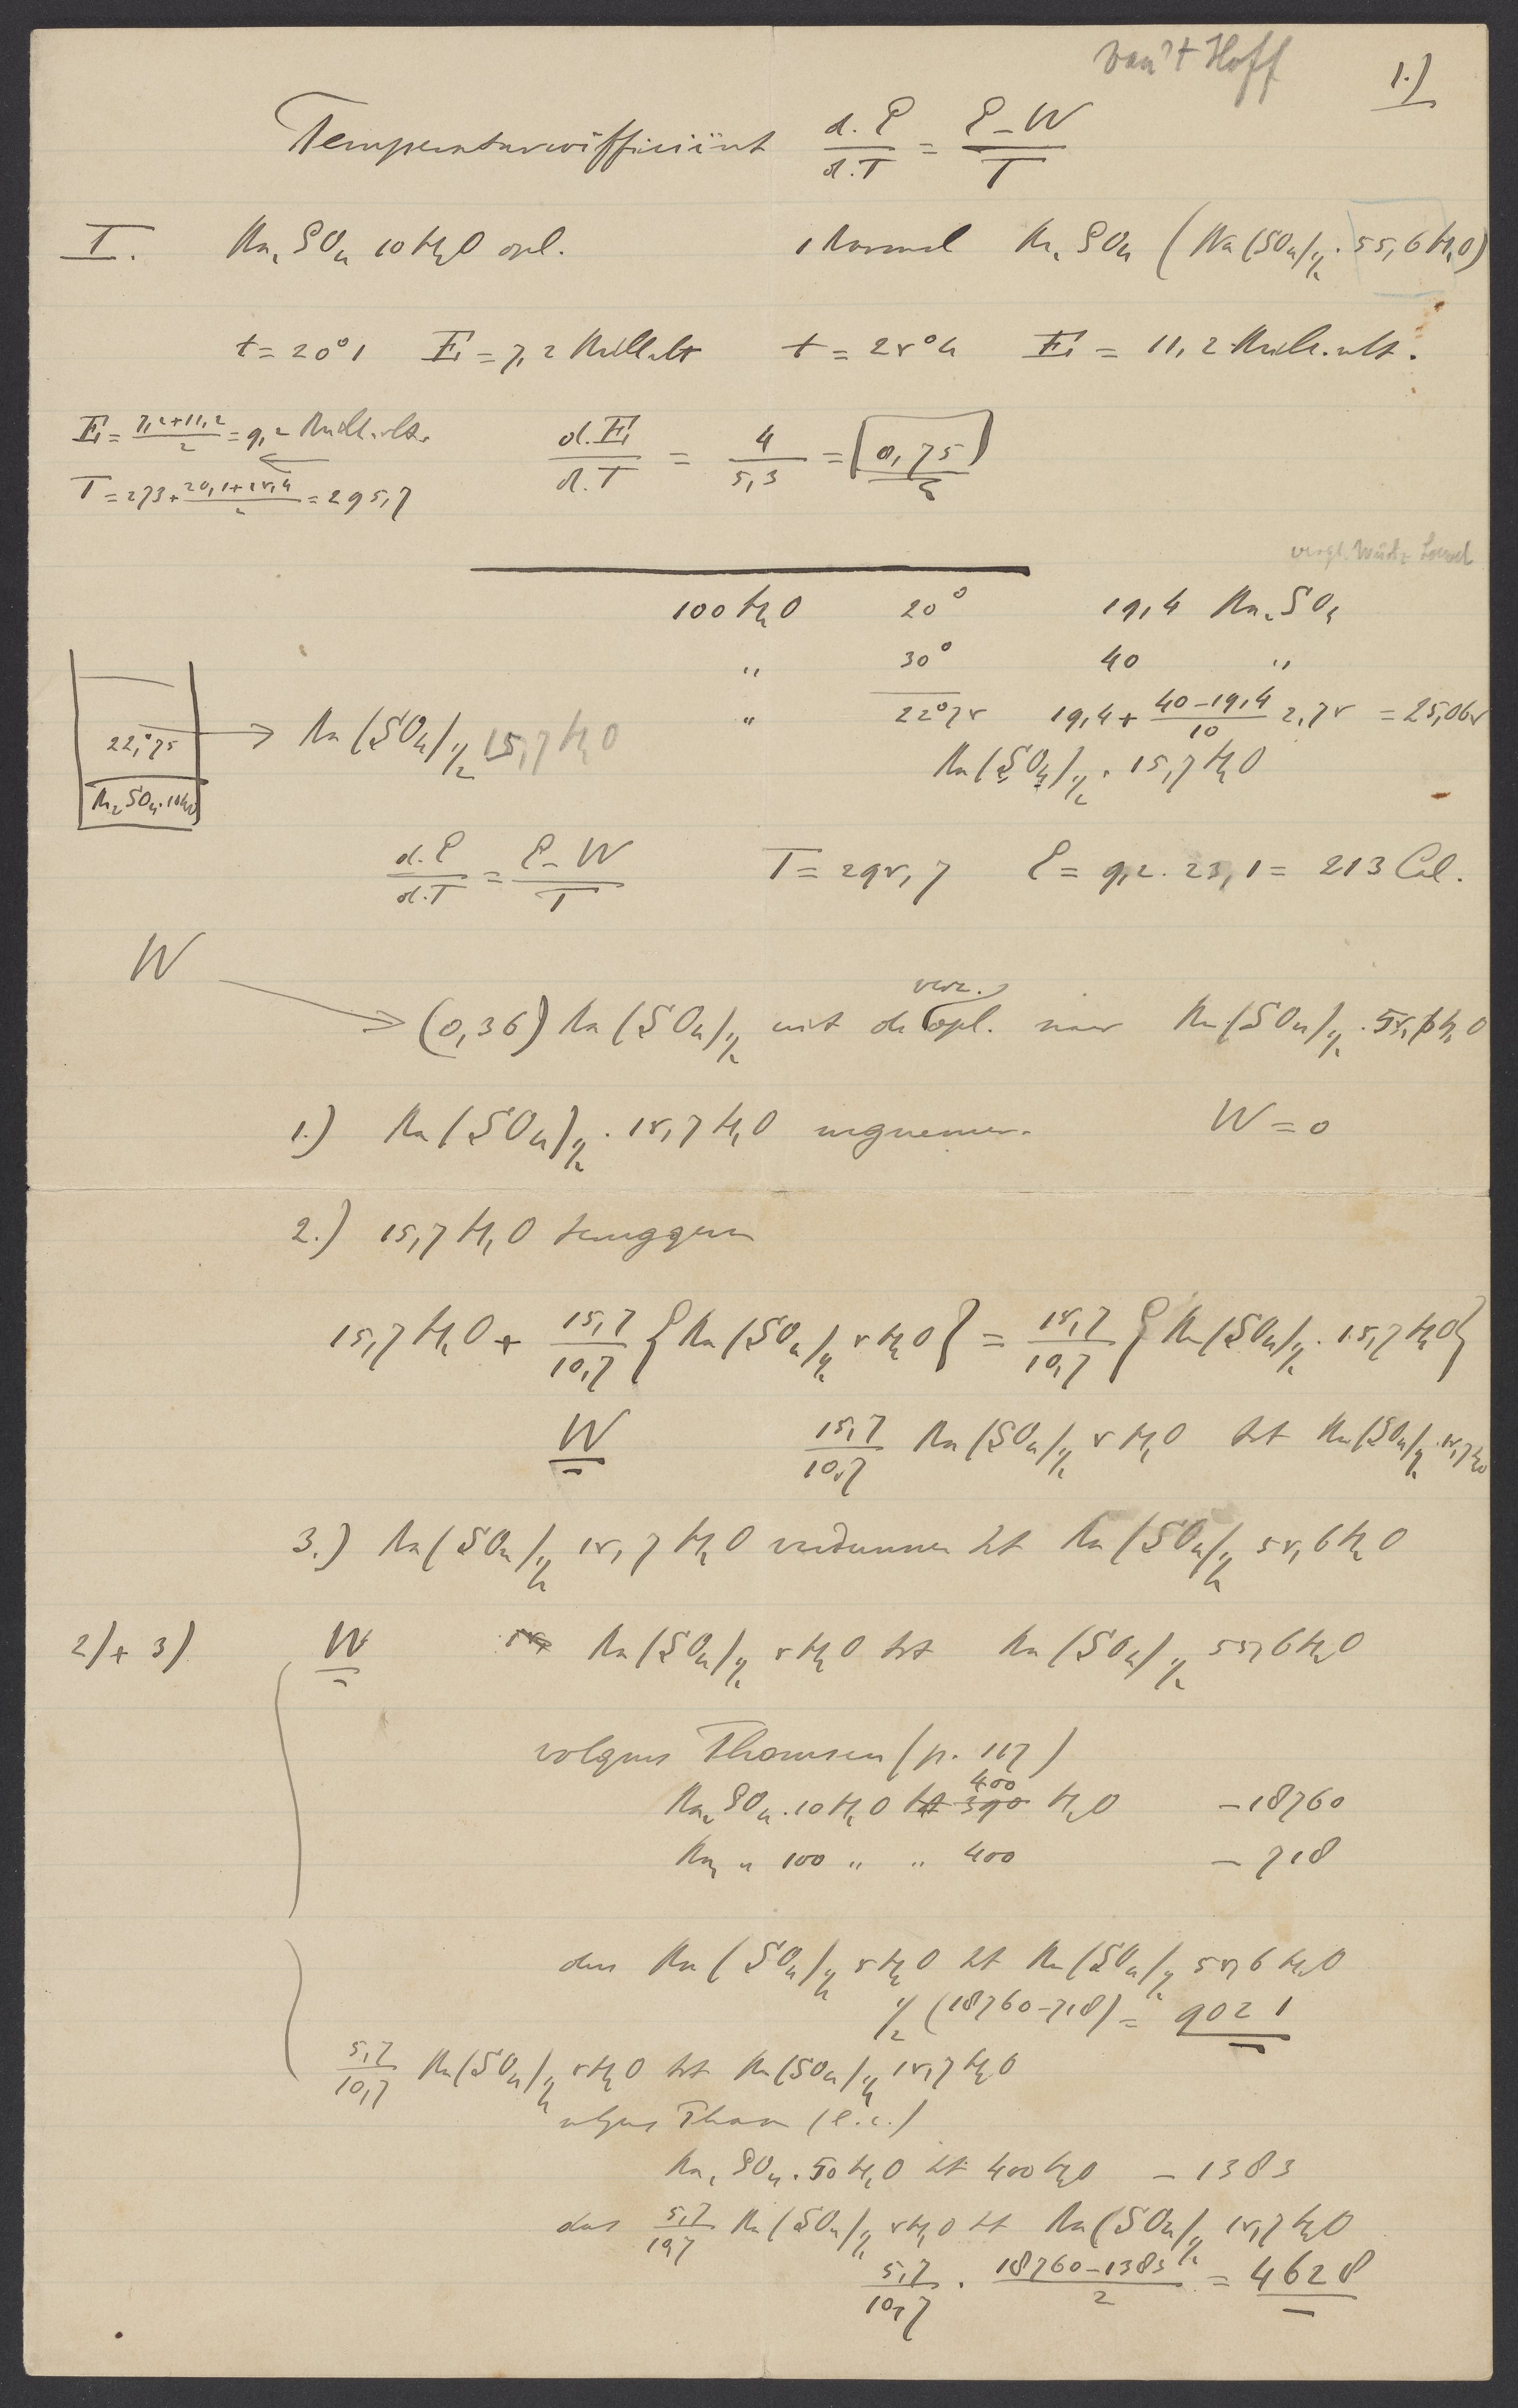 van 't Hoff
1.)
Temperatuurcoëfficiënt d.E/d.T = E – W/T
I. Na2SO4 10H2O opl. 1 Normal Na2SO4 (Na(SO4)½ · 55,6 H2O)
t = 20°1 E = 7,2 Millivolt t = 25°4 E = 11,2 Milli.volt.
E = 7,2+11,2/2 = 9,2 Milli.volt. d.E/d.T = 4/5,3 = 0,75
T = 273 + 20,1+25,4/2 = 295,7
100 H2O 20° 19,4 Na2SO4
" 30° 40 "
" 22°75 19,4 + 40–19,4/10 2,75 = 25,065
22,°75 → Na(SO4)½ 15,7 H2O
Na(SO4)½ · 15,7 H2O
Na2SO4·10H2O
d.E/d.T = E – W/T T = 295,7 E = 9,2 . 23,1 = 213 Cal.
W
verz.
(0,36) Na(SO4)½ uit de opl. naar Na(SO4)½ · 55,6 H2O
1.) Na(SO4)½ · 15,7 H2O wegnemen. W = 0
2.) 15,7 H2O teruggeven
15,7 H2O + 15,7/10,7 {Na(SO4)½ 5H2O} = 15,7/10,7 {Na(SO4)½ · 15,7 H2O}
W 15,7/10,7 Na(SO4)½ 5H2O tot Na(SO4)½ · 15,7 H2O
3.) Na(SO4)½ 15,7 H2O verdunnen tot Na(SO4)½ 55,6 H2O
2) + 3) W Na(SO4)½ 5H2O tot Na(SO4)½ 55,6 H2O
volgens Thomsen (p. 117)
400
Na2SO4 · 10H2O tot 390 H2O – 18760
Na2 " 100 " " 400 – 718
dus Na(SO4)½ 5H2O tot Na(SO4)½ 55,6 H2O
½ (18760–718) = 9021
5,7/10,7 Na(SO4)½ 5H2O tot Na(SO4)½ 15,7 H2O
volgens Thom (l.c.)
Na2SO4 · 50H2O tot 400 H2O – 1383
dus 5,7/10,7 Na(SO4)½ 5H2O tot Na(SO4)½ 15,7 H2O
5,7/10,7 · 18760–1383/2 = 4628